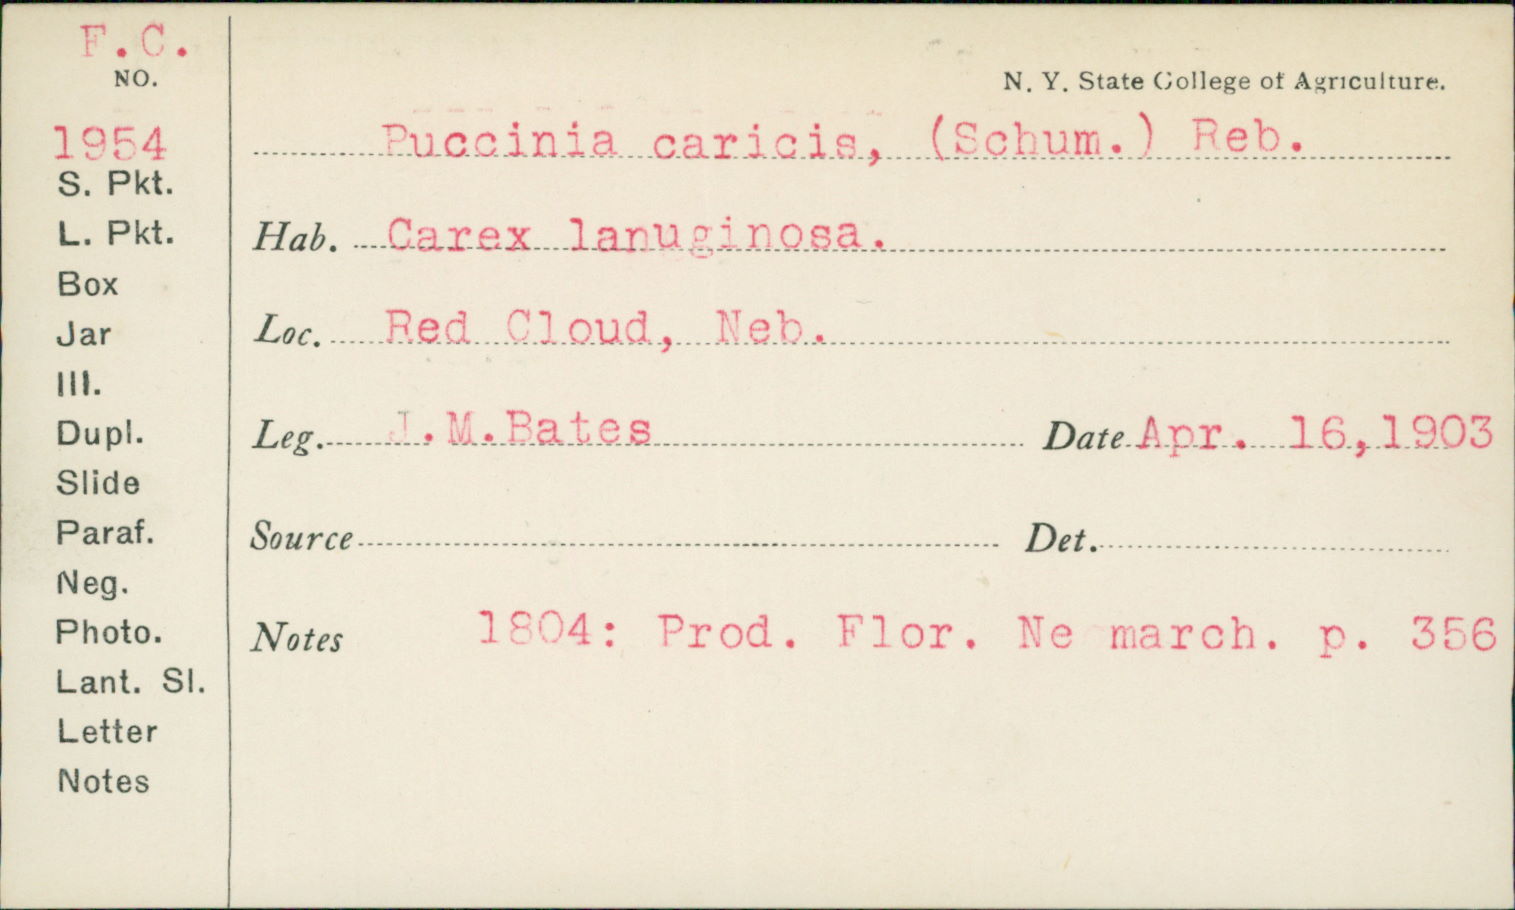 F.C.
NO.
1954
S. Pkt.
L. Pkt.
Box
Jar
Ill.
Dupl.
Slide
Paraf.
Neg.
Photo.
Lant. Sl.
Letter
Notes
N. Y. State College of Agriculture.
Puccinia caricis, (Schum.) Reb.
Hab. Carex lanuginosa.
Loc. Red Cloud, Neb.
Leg. J.M.Bates Date Apr. 16,1903
Source Det.
Notes 1804: Prod. Flor. Ne march. p. 356